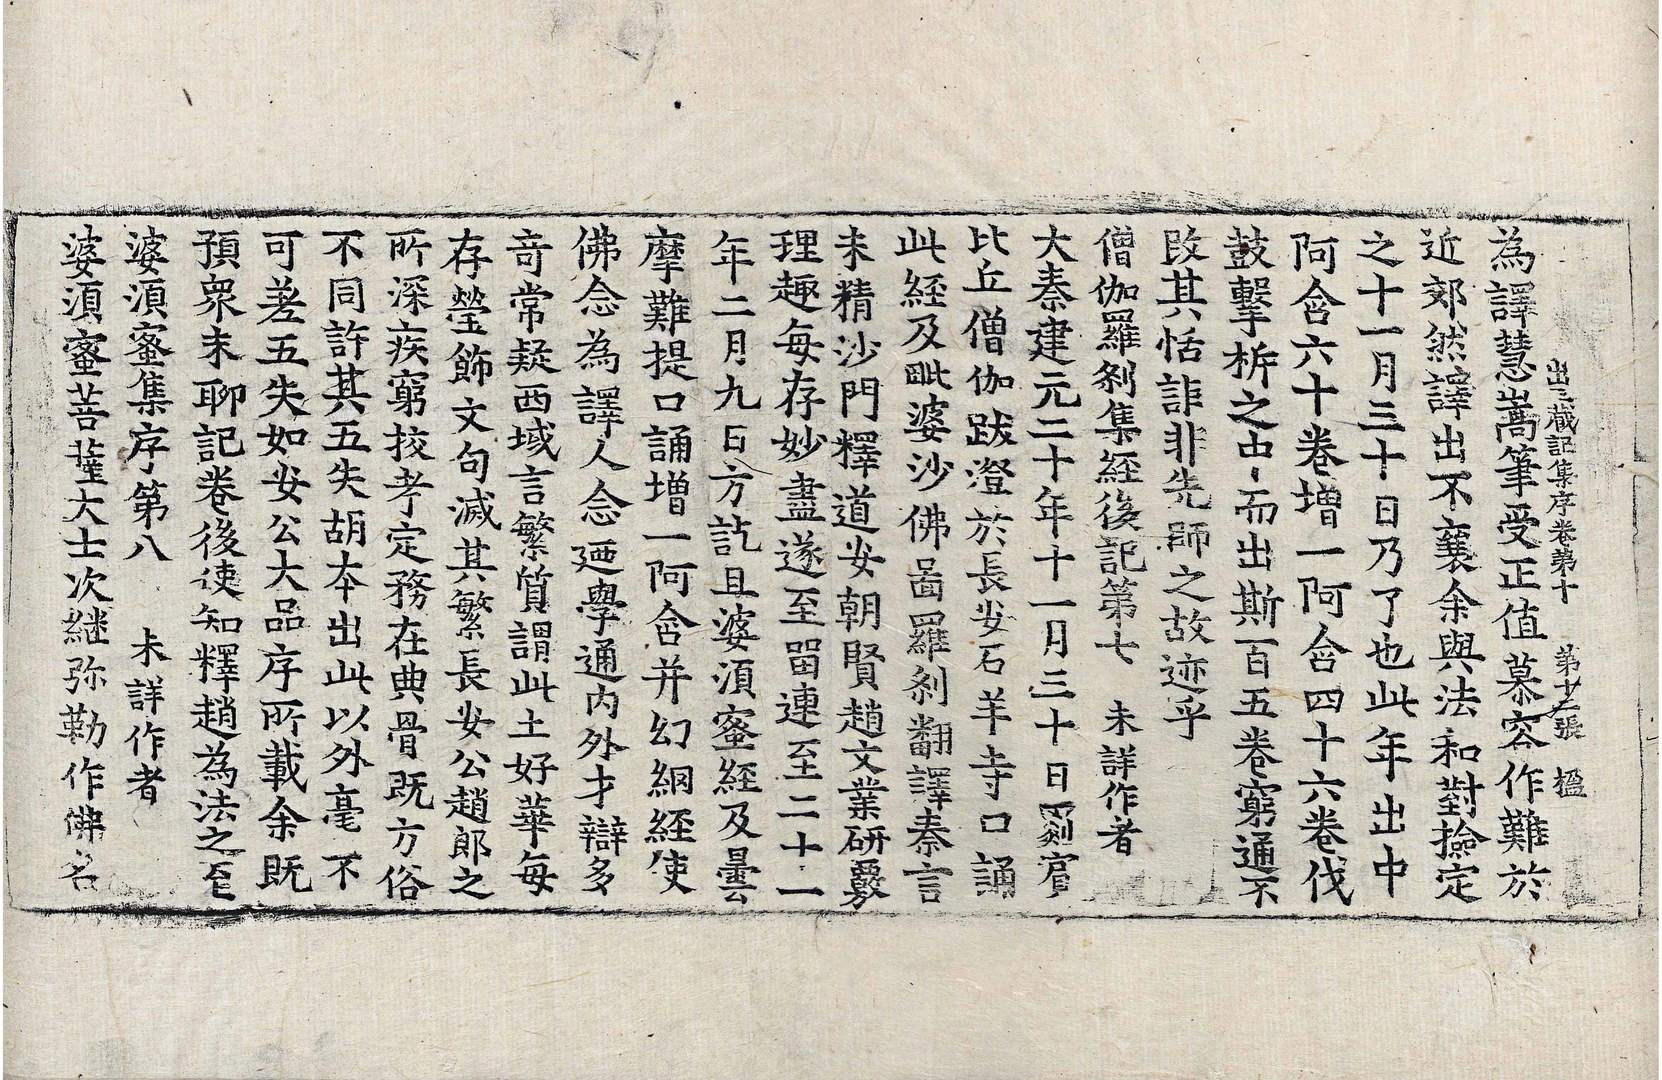 出三藏記集序卷第十 第十五張 楹
為譯慧嵩筆受正值慕容作難於
近郊然譯出不襄余與法和對撿定
之十一月三十日乃了也此年出中
阿含六十卷增一阿含四十六卷伐
鼓擊柝之中而出斯百五卷窮通不
改其恬詎非先師之故迹乎
僧伽羅剎集經後記第七 未詳作者
大秦建元二十年十一月三十日罽賓
比丘僧伽跋澄於長安石羊寺口誦
此經及毗婆沙佛啚羅剎翻譯秦言
未精沙門釋道安朝賢趙文業研覈
理趣每存妙盡遂至留連至二十一
年二月九日方訖且婆須蜜經及曇
摩難提口誦增一阿含并幻網經使
佛念為譯人念迺學通內外才辯多
奇常疑西域言繁質謂此土好華每
存瑩飾文句滅其繁長安公趙郎之
所深疾窮挍考定務在典骨既方俗
不同許其五失胡本出此以外毫不
可差五失如安公大品序所載余既
預眾末聊記卷後使知釋趙為法之至
婆須蜜集序第八 未詳作者
婆須蜜菩薩大士次継弥勒作佛名